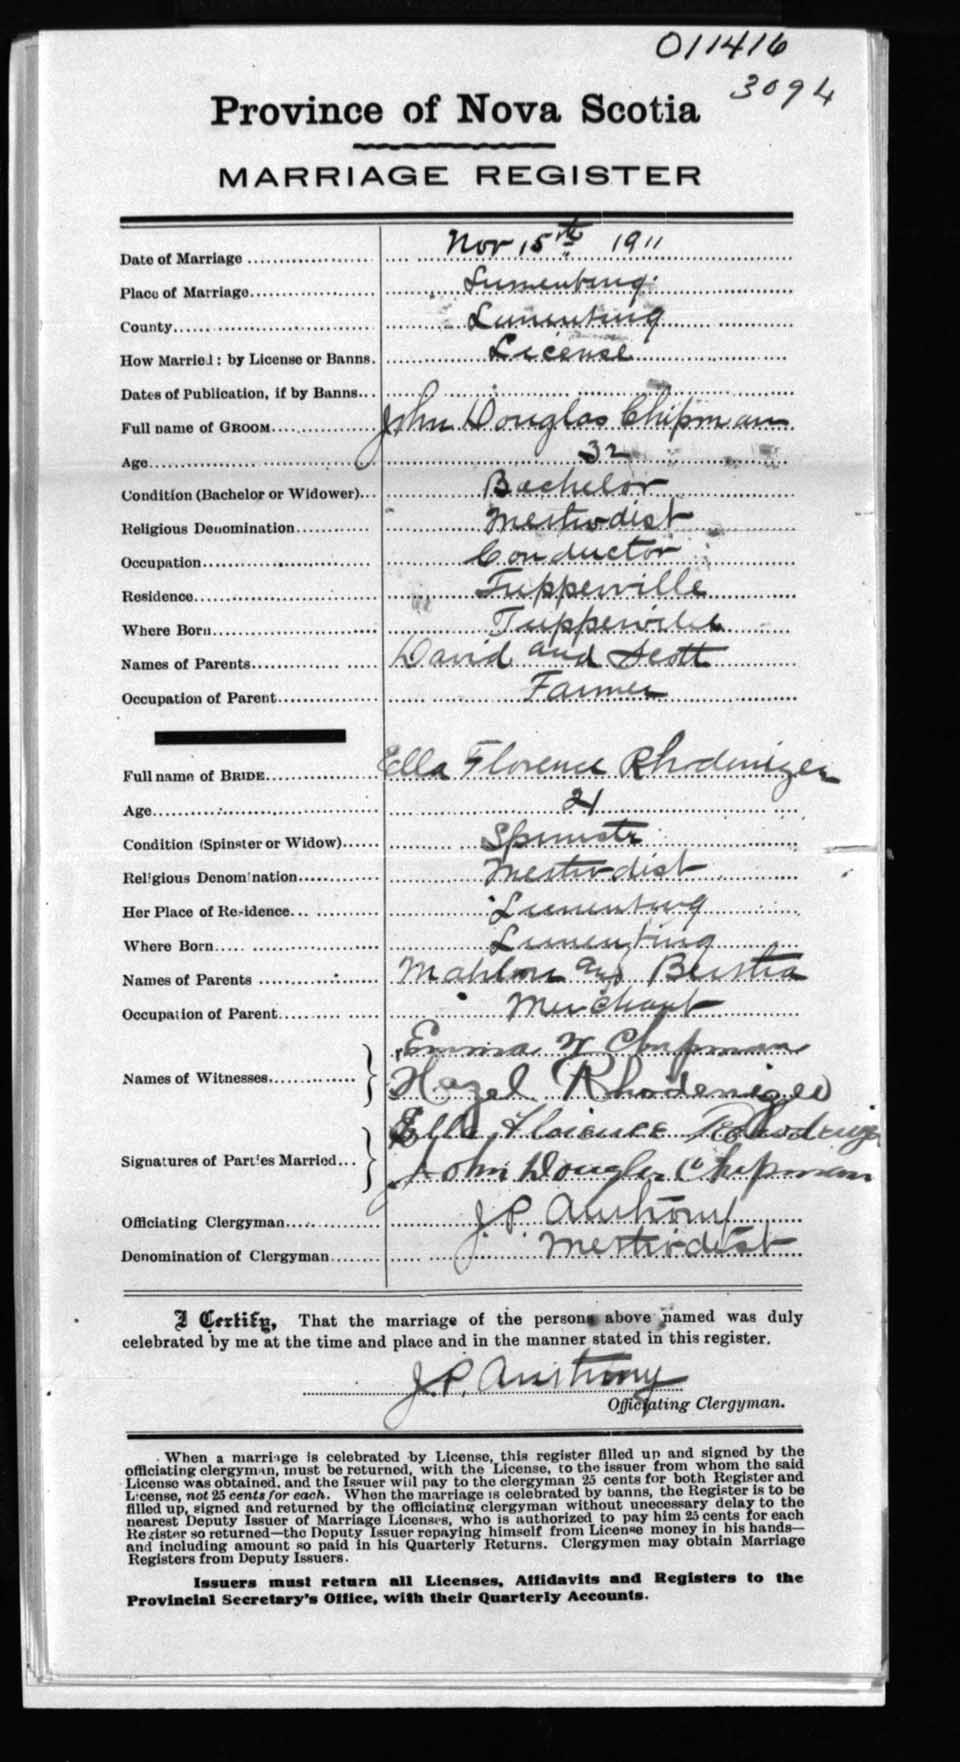 011416
3094
Province of Nova Scotia
MARRIAGE REGISTER
Date of Marriage Nov 15th 1911
Place of Marriage Lunenburg
County Lunenburg
How Married: by License or Banns. License
Dates of Publication, if by Banns
Full name of GROOM John Douglas Chipman
Age 32
Condition (Bachelor or Widower) Bachelor
Religious Denomination Methodist
Occupation Conductor
Residence Tupperville
Where Born Tupperville
Names of Parents David and Scott
Occupation of Parent Farmer
Full name of BRIDE Ella Florence Rhodenizer
Age 21
Condition (Spinster or Widow) Spinstr
Religious Denomination Methodist
Her Place of Residence Lunenburg
Where Born Lunenburg
Names of Parents Mahlon and Bertha
Occupation of Parent Merchant
Emma Chipman
Names of Witnesses
Hazel Rhodenizer
Ella Florence Rhodenizer
Signatures of Parties Married
John Douglas Chipman
Officiating Clergyman J.P. Anthony
Denomination of Clergyman Methodist
I Certify, That the marriage of the persons above named was duly
celebrated by me at the time and place and in the manner stated in this register.
J.P. Anthony
Officiating Clergyman.
When a marriage is celebrated by License, this register filled up and signed by the
officiating clergyman, must be returned, with the License, to the issuer from whom the said
License was obtained, and the Issuer will pay to the clergyman 25 cents for both Register and
License, not 25 cents for each. When the marriage is celebrated by banns, the Register is to be
filled up, signed and returned by the officiating clergyman without unecessary delay to the
nearest Deputy Issuer of Marriage Licenses, who is authorized to pay him 25 cents for each
Register so returned—the Deputy Issuer repaying himself from License money in his hands—
and including amount so paid in his Quarterly Returns. Clergymen may obtain Marriage
Registers from Deputy Issuers.
Issuers must return all Licenses, Affidavits and Registers to the
Provincial Secretary's Office, with their Quarterly Accounts.